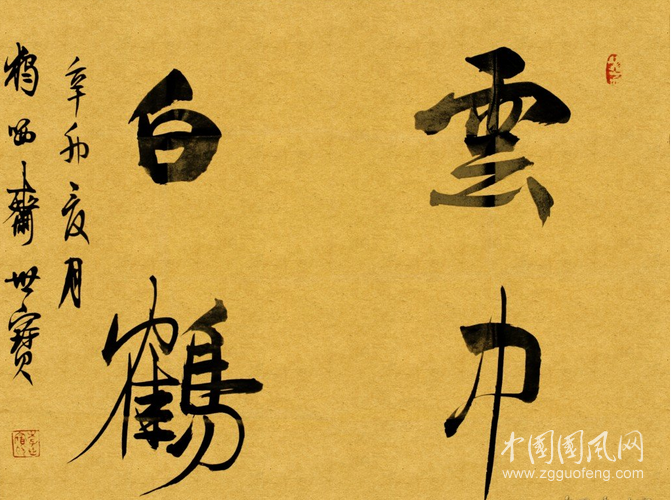 雲中
白鶴
辛卯夏月
齋世寶
中國國风网
www.zgguofeng.com